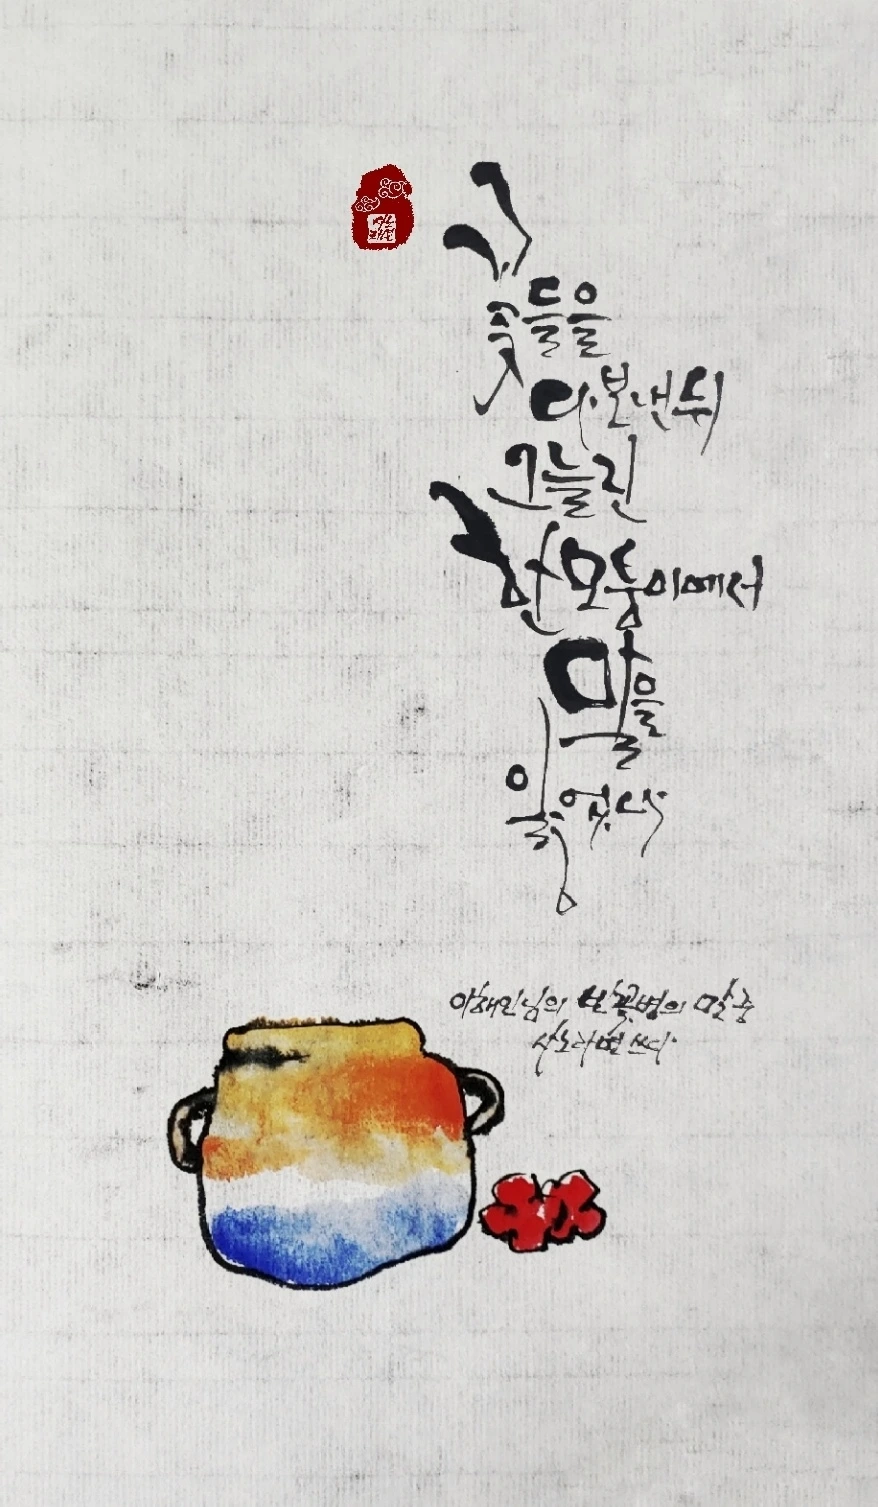 꽃들을
다 보낸 뒤
그늘진
한 모퉁이에서
말을
잃었다
이해인님의 빈 꽃병의 말 중
쓰다